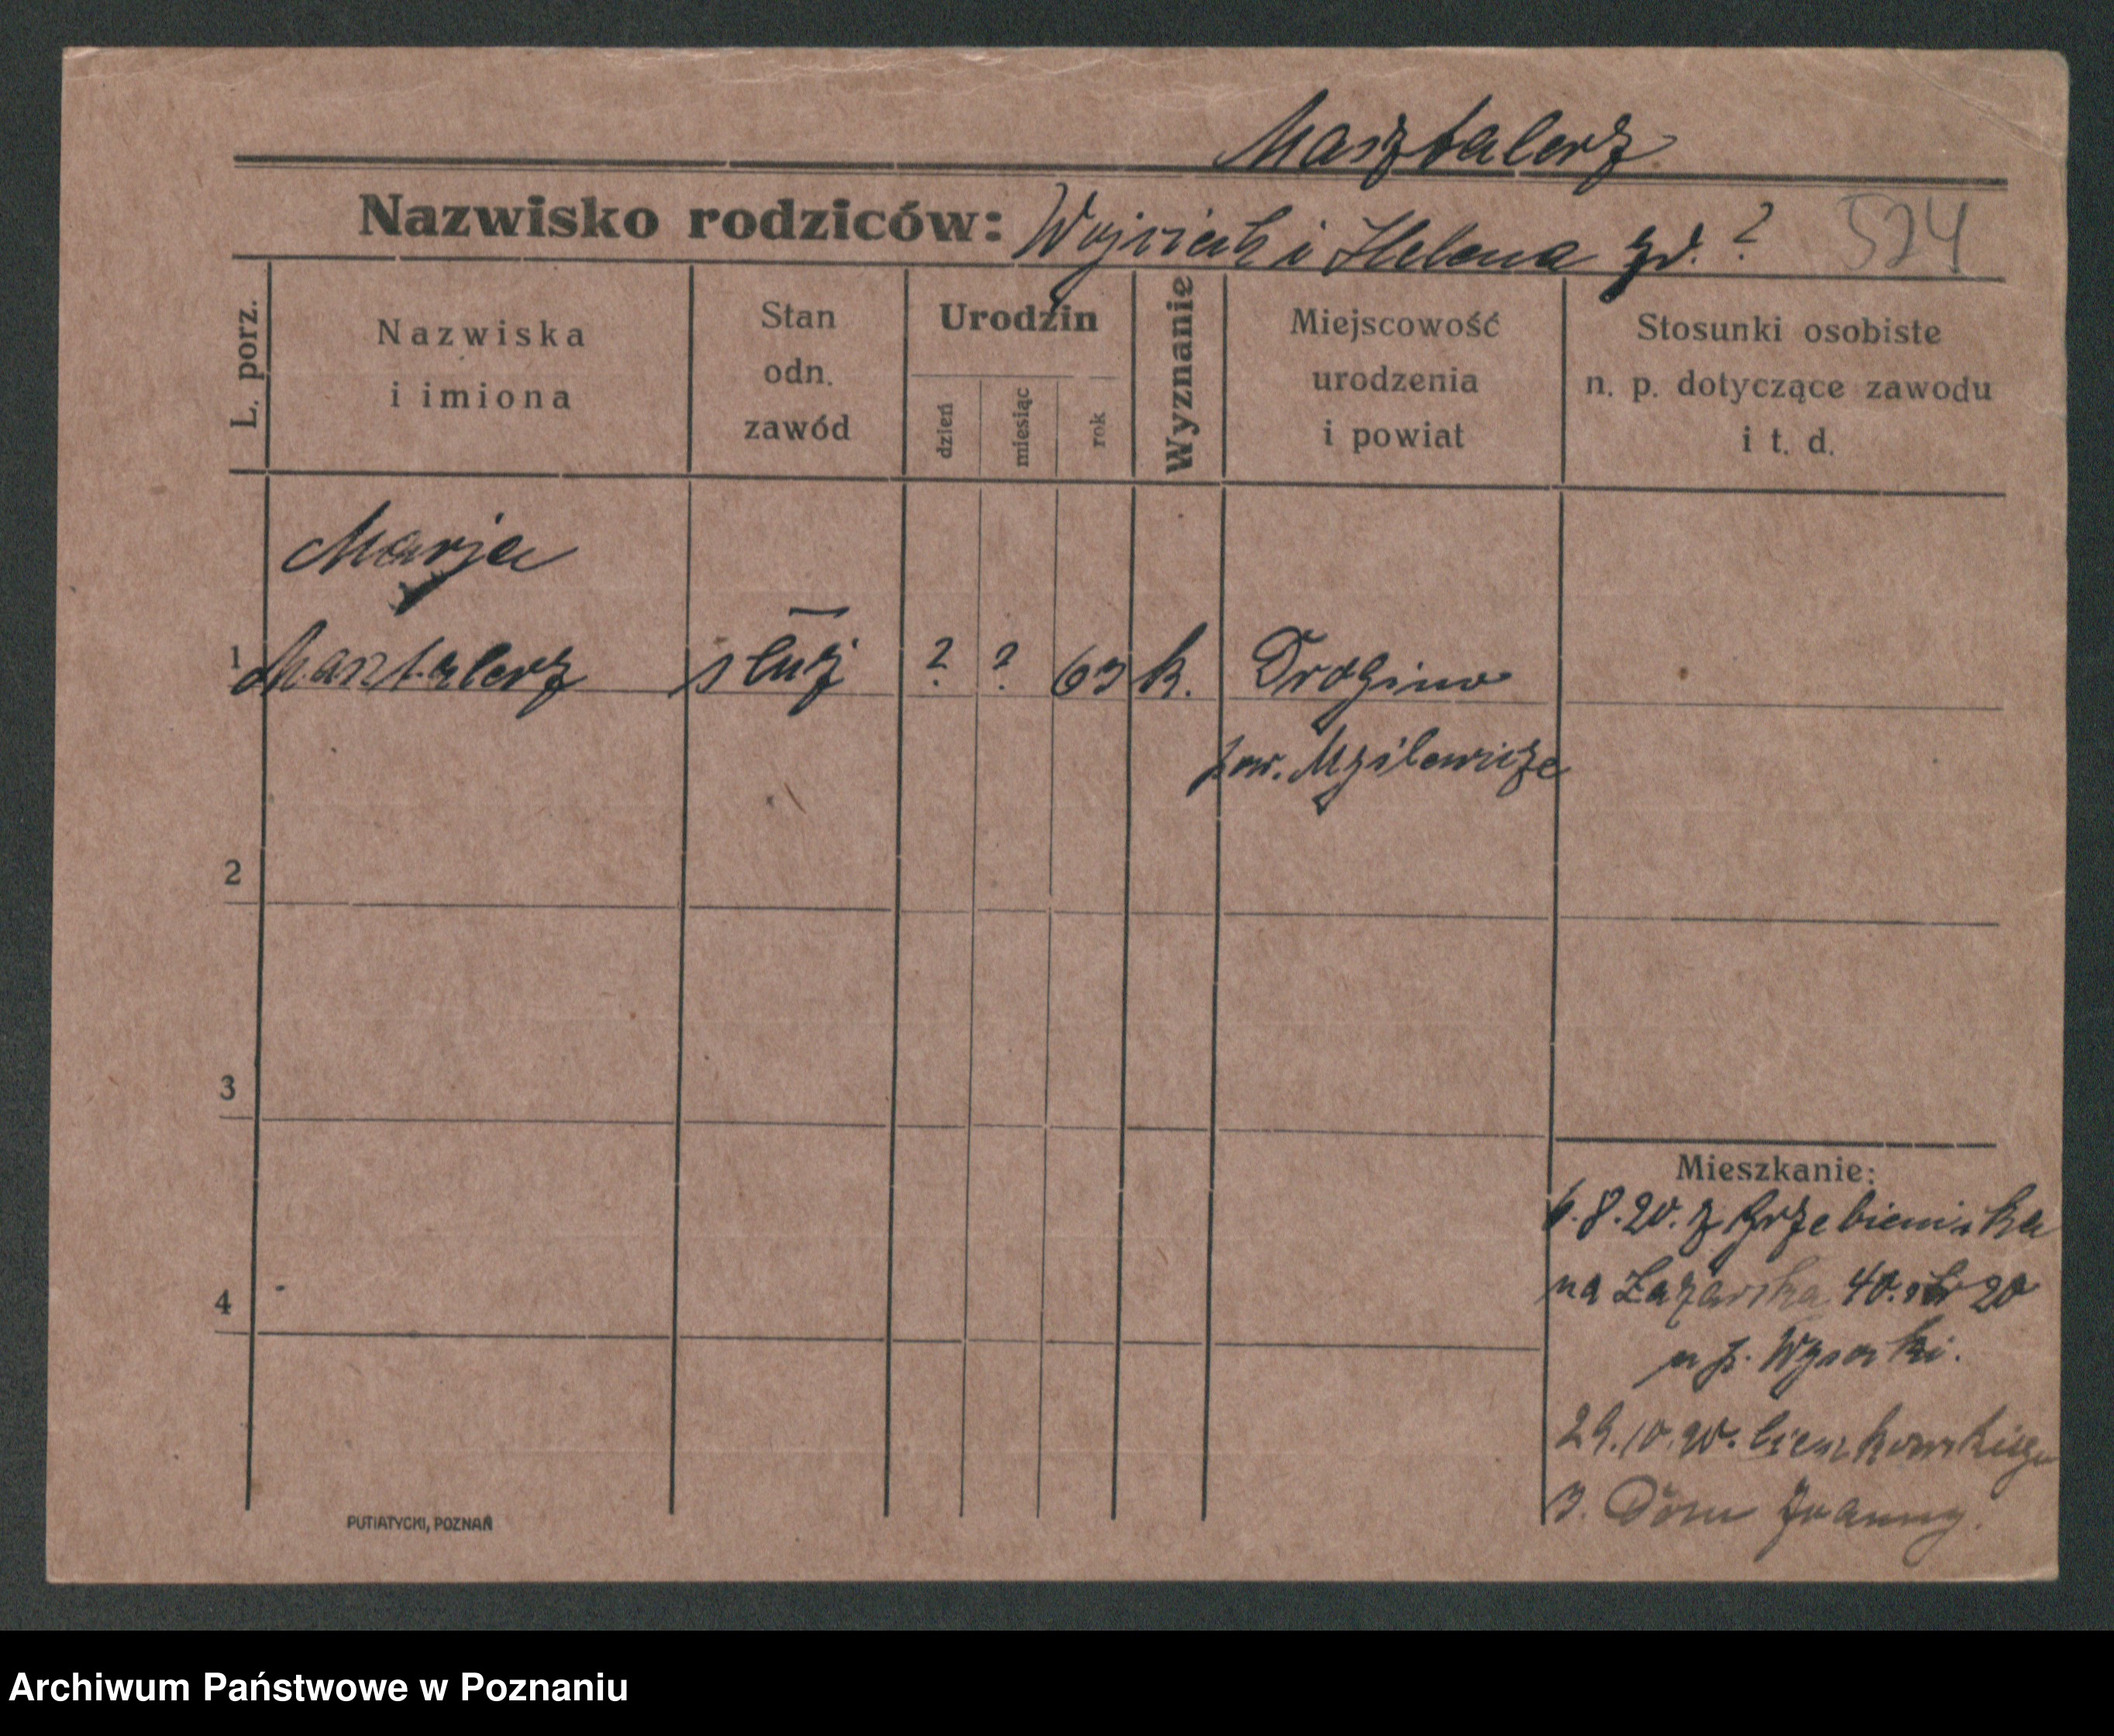 Masztalerz
Nazwisko rodziców: Wojciech i Helena zd. ? 524
L. porz.
Nazwiska
i imiona
Stan
odn.
zawód
Urodzin
dzień
miesiąc
rok
Wyznanie
Miejscowość
urodzenia
i powiat
Stosunki osobiste
n. p. dotyczące zawodu
i t. d.
Marja
1 Masztalerz służ ? ? 63 k.
pow.
2
3
4
Mieszkanie:
6.8.20. z Grzebieniska
na Łazarska 40. 20
u p. Wysocki.
3. Dom
PUTIATYCKI, POZNAŃ
Archiwum Państwowe w Poznaniu